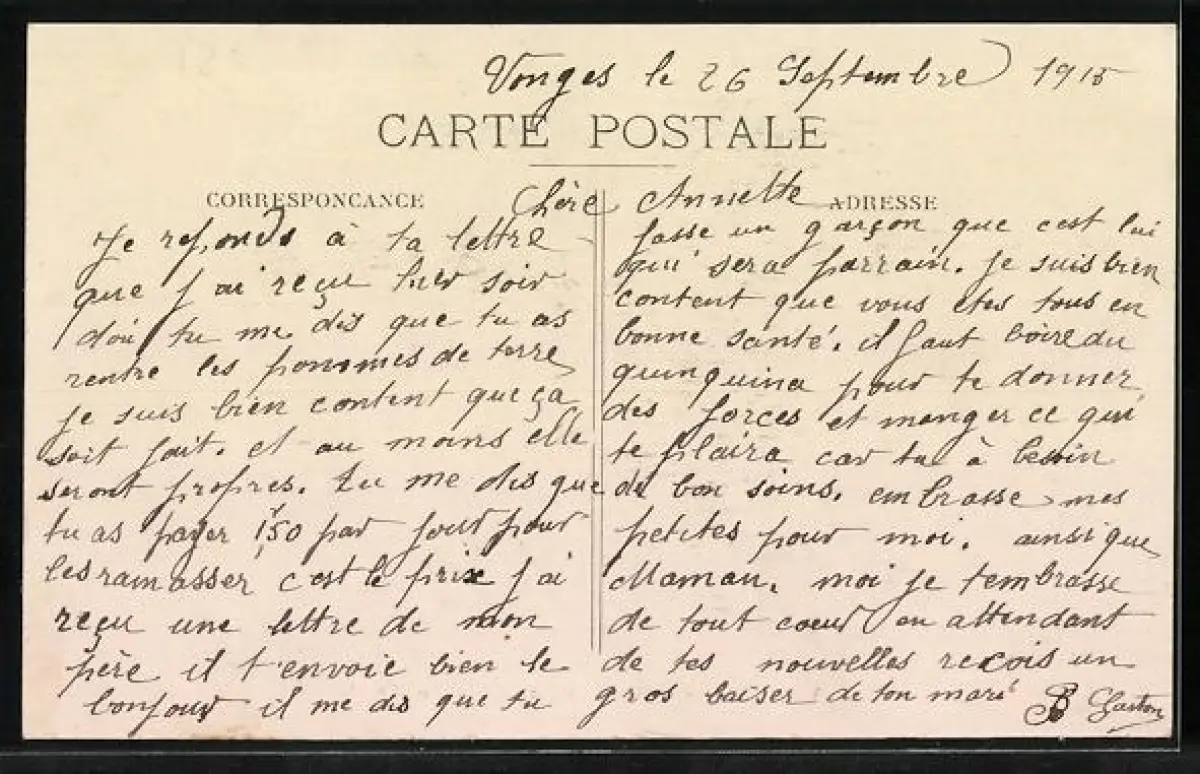 Vonges le 26 Septembre 1915
CARTE POSTALE
CORRESPONCANCE
ADRESSE
Chère Annette
Je reponds à ta lettre
que j'ai reçu hier soir
d'où tu me dis que tu as
rentre les pommes de terre
je suis bien content que ça
soit fait. et au moins elle
seront propres. tu me dis que
tu as payer 1f,50 par jour pour
les ramasser c'est le prix j'ai
reçu une lettre de mon
père il t'envoie bien le
bonjour il me dis que tu
fasse un garçon que c'est lui
qui sera parrain. je suis bien
content que vous êtes tous en
bonne santé. il faut boire du
quinquina pour te donner
des forces et manger ce qui
te plaira car tu à besoin
de bon soins. embrasse mes
petites pour moi. ainsi que
Maman. moi je t'embrasse
de tout coeur en attendant
de tes nouvelles recois un
gros baiser de ton mari
B Gaston